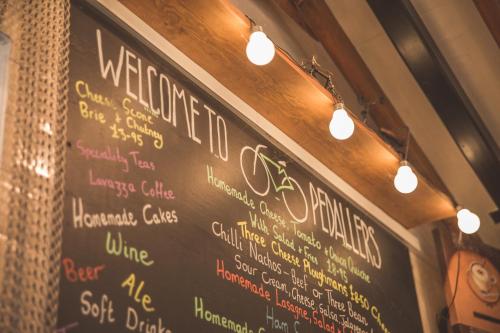 WELCOME TO PEDALLERS
Cheese Scone
Brie & Chutney
Speciality Teas
Lavazza Coffee
Homemade Cakes
Wine
Beer
Ale
Soft Drink
Homemade Cheese, Tomato & Onion Quiche
With Salad & Fries
Three Cheese Ploughmans £8.50
Chilli Nachos - Beef Or Three Bean
Sour Cream, Cheese, salsa, Jalape
Homemade Lasagne, Salad &
Homemade
Ham